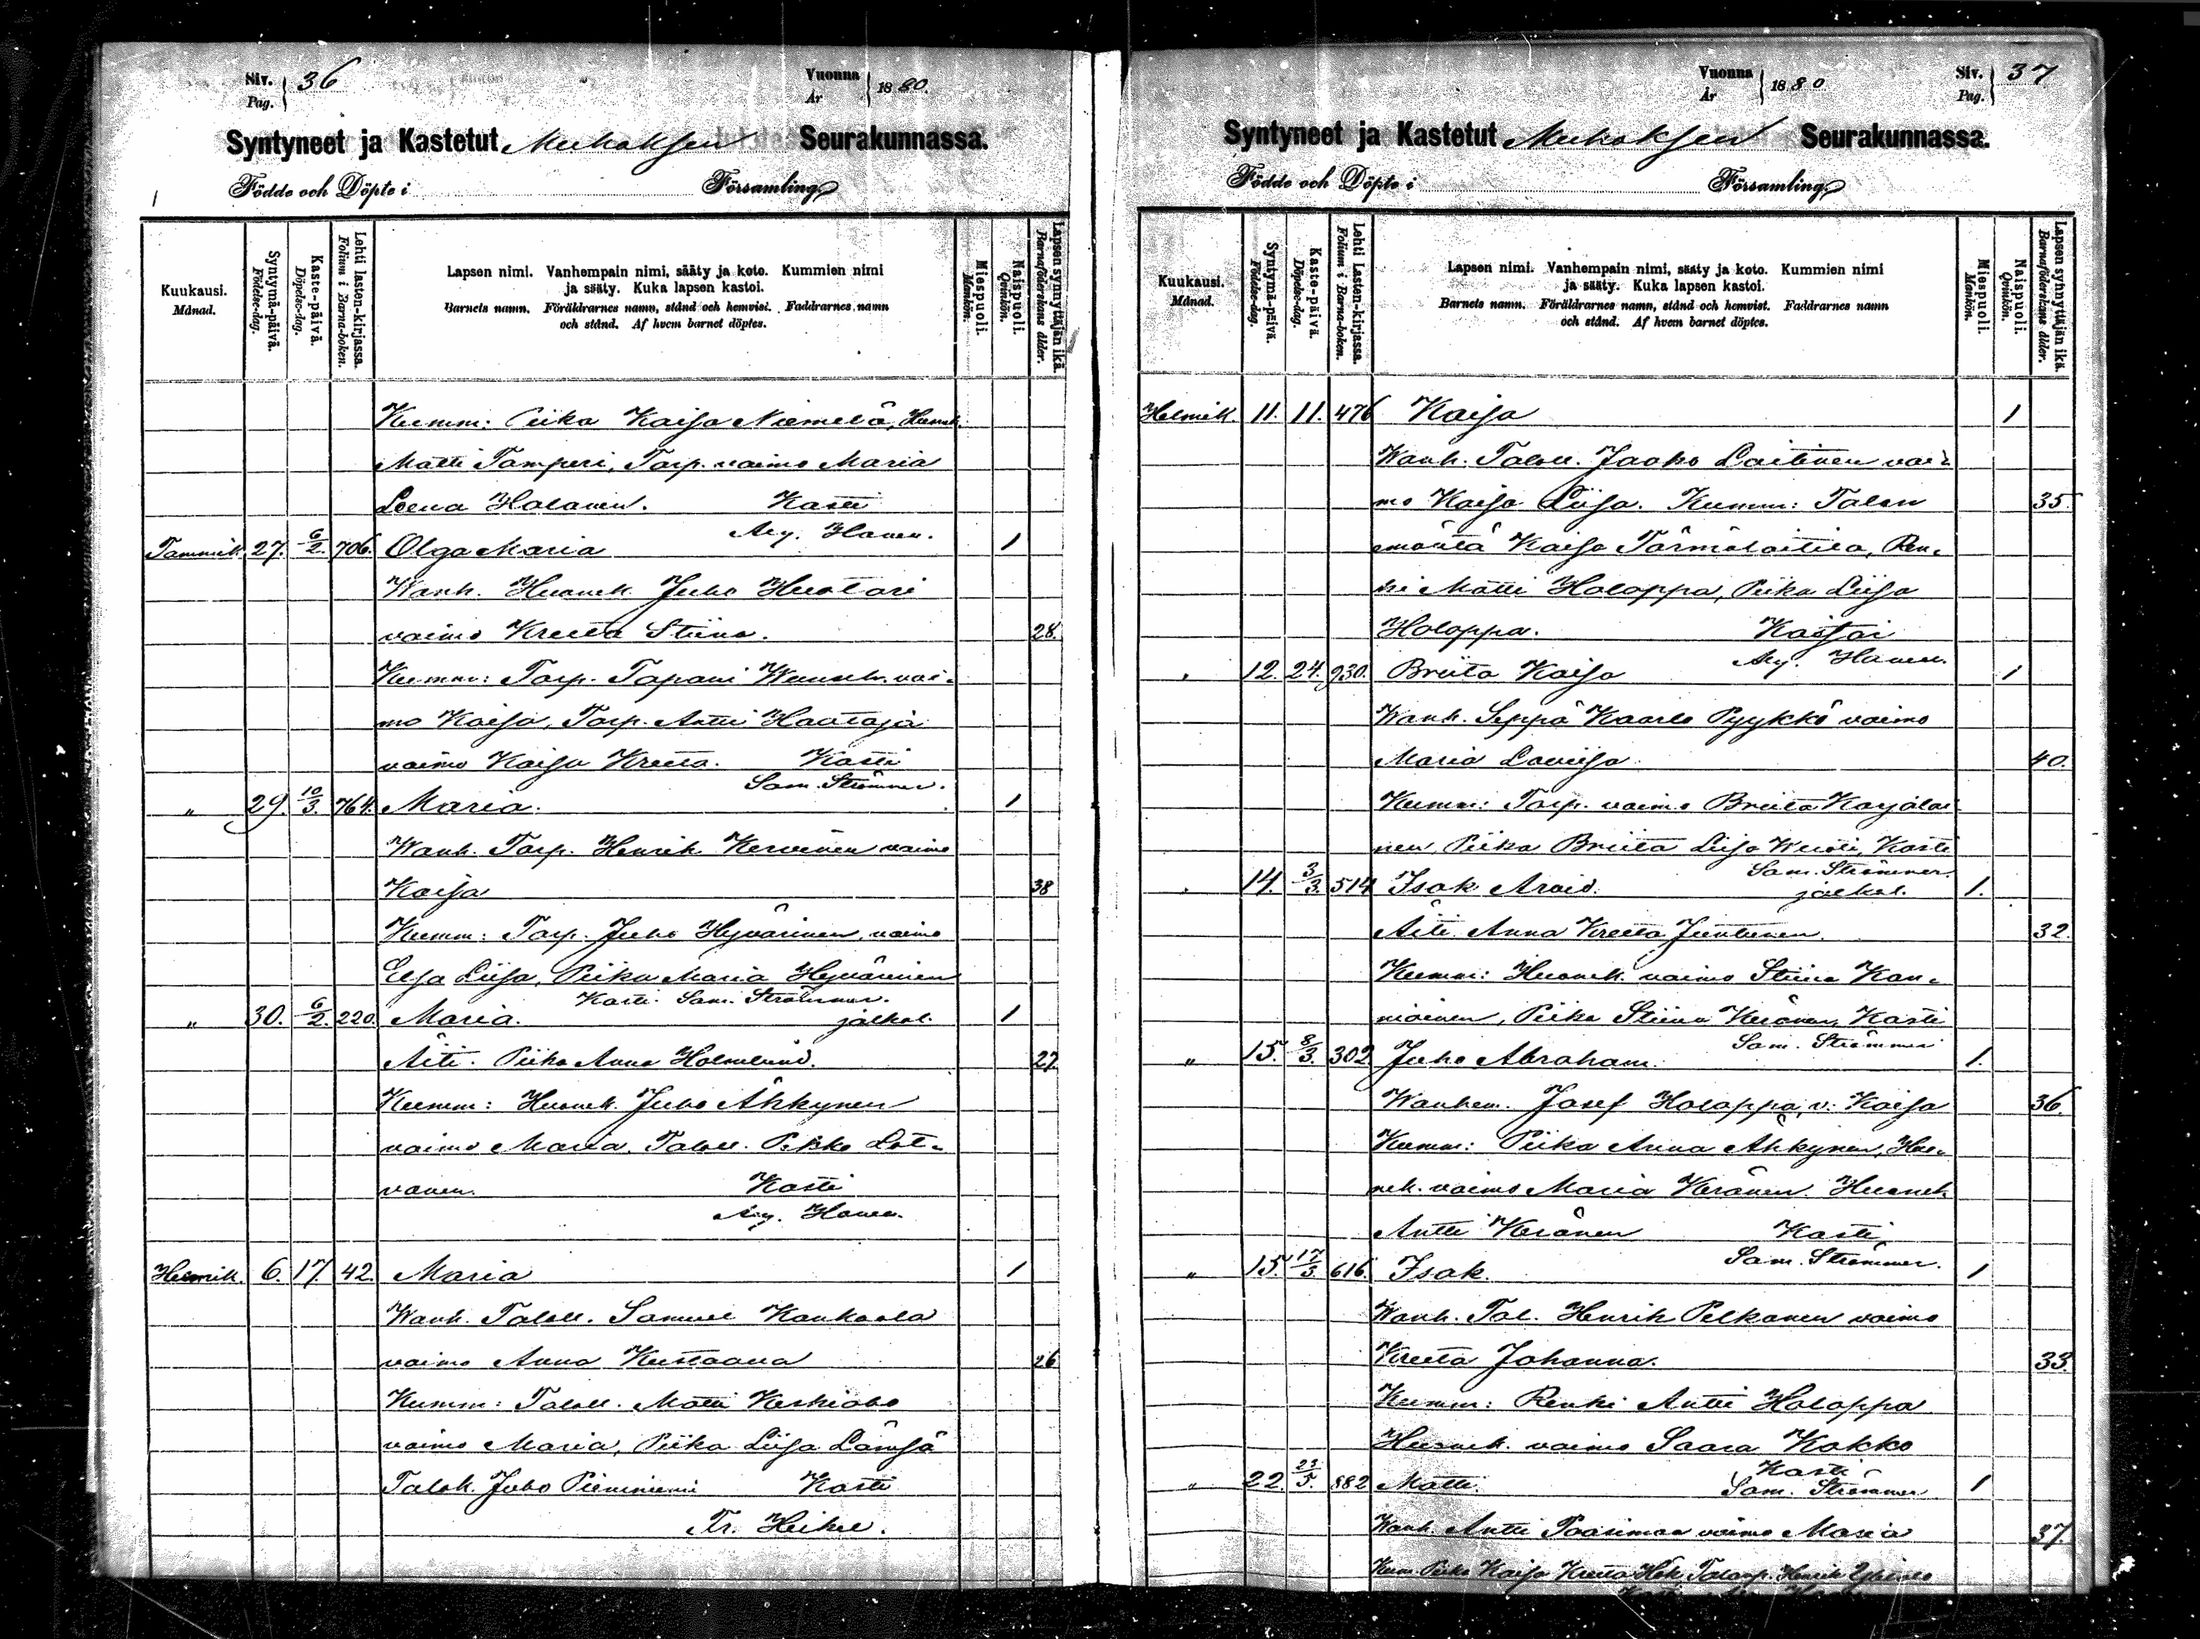 Siv. 36
Pag.
Vuonna 1880.
År
Syntyneet ja Kastetut Muhoksen Seurakunnassa.
Födde och Döpte i Församling
Kuukausi.
Månad.
Syntymä-päivä.
Födelse-dag.
Kaste-päivä.
Döpelse-dag.
Lehti lasten-kirjassa.
Folium i Barna-boken.
Lapsen nimi. Vanhempain nimi, sääty ja koto. Kummien nimi
ja sääty. Kuka lapsen kastoi.
Barnets namn. Föräldrarnes namn, stånd och hemvist. Faddrarnes namn
och stånd. Af hvem barnet döptes.
Miespuoli.
Mankön.
Naispuoli.
Qvinkön.
Lapsen synnyttäjän ikä.
Barnaföderskans ålder.
Kumm: Piika Kaisa Niemelä, Huonek.
Matti Tamperi, Torp. vaimo Maria
Leena Halanen. Kasti
Aug. Hanen.
Tammik. 27. 6/2. 706. Olga Maria 1
Wanh. Huonek. Juho Huotari
vaimo Kreeta Stiina. 28.
Kumm: Torp. Tapani vai-
mo Kaisa, Torp. Antti Haataja
vaimo Kaisa Kreeta. Kasti
Sam. Strömmer.
" 29. 10/3. 764. Maria. 1
Wanh. Torp. Henrik Kervinen vaimo
Kaisa 38
Kumm: Torp. Juho Hyvärinen, vaimo
Elsa Liisa, Piika Maria Hyvärinen
Kasti Sam. Strömmer.
" 30. 6/2. 220. Maria. jalkal. 1
Äiti. Piika Anna Holmlund. 27.
Kumm: Huonek. Juho Ähkynen
vaimo Maria, Taloll. Pekko Lot-
vanen. Kasti
Aug. Hanen.
Helmik. 6. 17. 42. Maria 1
Wanh. Taloll. Samuel Kankaala
vaimo Anna Kustaava 26
Kumm: Taloll. Matti Keskiaho
vaimo Maria, Piika Liisa Lämsä
Talok. Juho Pieniniemi Kasti
Tr. Heikel.
Vuonna 1880
År
Siv. 37
Pag.
Syntyneet ja Kastetut Muhoksen Seurakunnassa.
Födde och Döpte i Församling
Kuukausi.
Månad.
Syntymä-päivä.
Födelse-dag.
Kaste-päivä.
Döpelse-dag.
Lehti Lasten-kirjassa.
Folium i Barna-boken.
Lapsen nimi. Vanhempain nimi, sääty ja koto. Kummien nimi
ja sääty. Kuka lapsen kastoi.
Barnets namn. Föräldrarnes namn, stånd och hemvist. Faddrarnes namn
och stånd. Af hvem barnet döptes.
Miespuoli.
Mankön.
Naispuoli.
Qvinkön.
Lapsen synhyttäjän ikä.
Barnaföderskans ålder.
Helmik. 11. 11. 476 Kaisa 1
Wanh. Taloll. Jaako Laitinen vai-
mo Kaisa Liisa. Kumm: Talon 35.
emäntä Kaisa Törmälaitila, Ren-
ki Matti Holappa, Piika Liisa
Holappa. Kastoi
Aug. Hanen.
" 12. 24. 930. Briita Kaisa 1
Wanh. Seppä Kaarlo Pyykkö vaimo
Maria Loviisa 40.
Kumm: Torp. vaimo Briita Karjalai-
nen, Piika Briita Liisa Kasti
Sam. Strömmer.
" 14. 3/3. 514 Isak Arvid. jalkal. 1.
Äiti Anna Kreeta Juntunen. 32.
Kumm: Huonek. vaimo Stiina Kan-
niainen, Piika Stiina Keränen, Kasti
Sam. Strömmer
" 15. 8/3. 302 Juho Abraham. 1.
Wanhem. Josef Holappa, v. Kaisa 36.
Kumm: Piika Anna Ähkynen, Huo-
nek. vaimo Maria Keränen. Huonek
Antti Keränen Kasti
Sam. Strömmer.
" 15. 17/3 616. Isak. 1
Wanh. Tal. Henrik Pelkonen vaimo
Kreeta Johanna. 33.
Kumm: Renki Antti Holappa
Huonek. vaimo Saara Kokko
Kasti
Sam. Strömmer
" 22. 23/5. 882 Matti. 1
Wanh. Antti Paasimaa vaimo Maria 37.
Kum. Piika Kaisa Kreeta Henrik